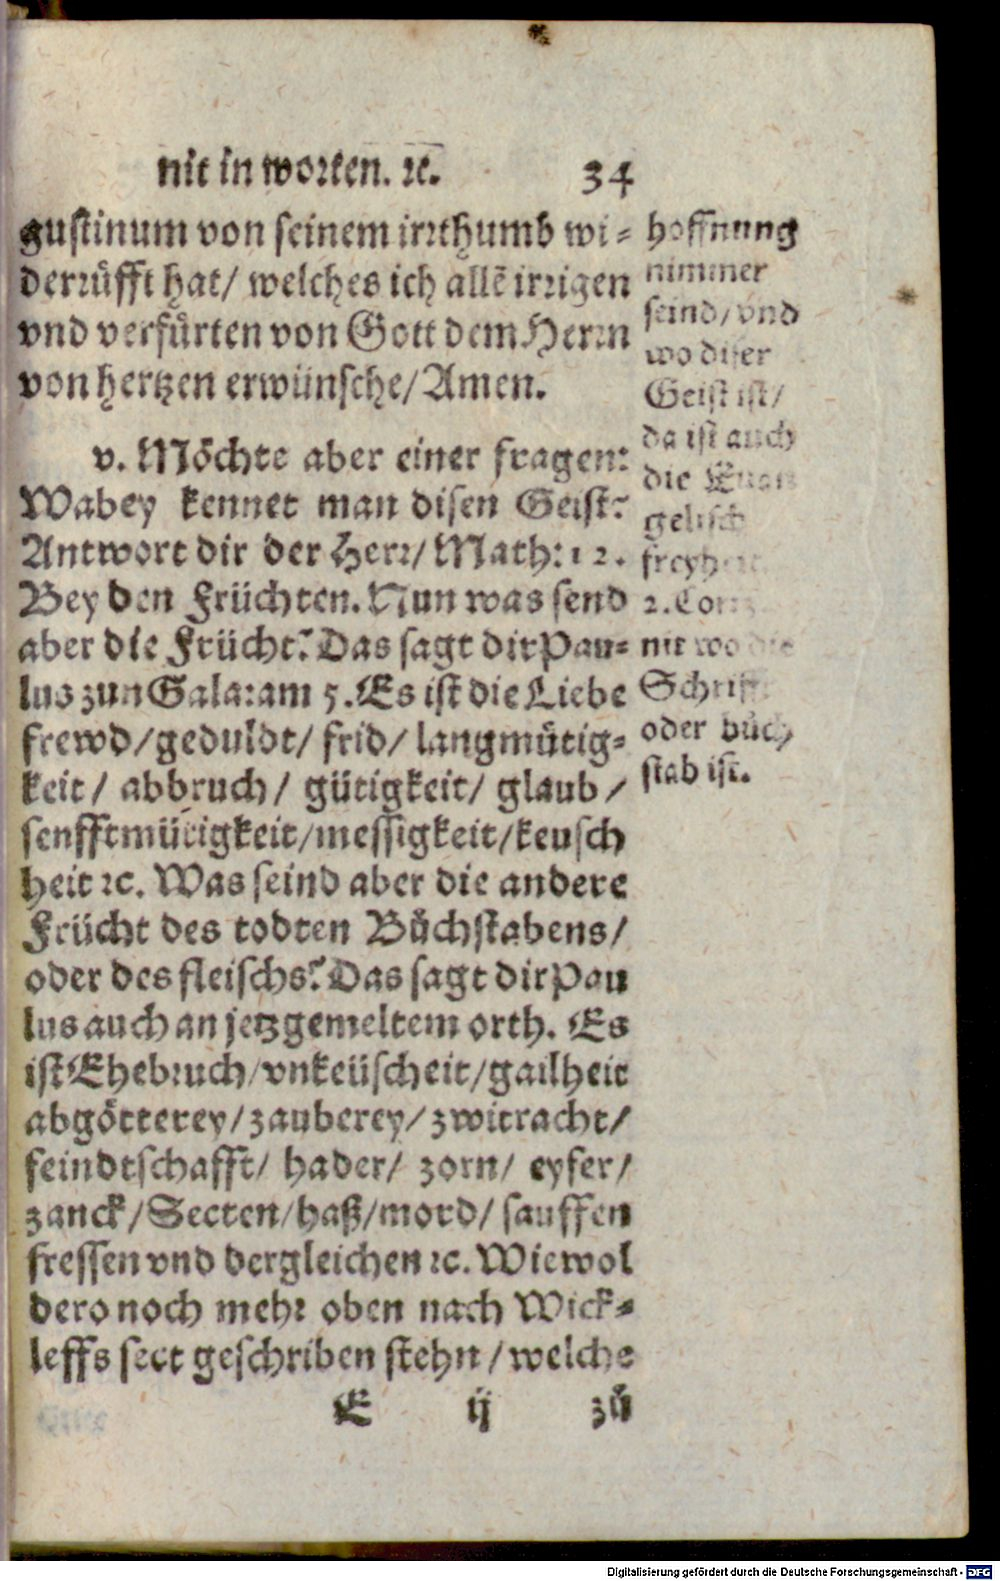 nit in worken. ꝛc. 34
gustinum von seinem irrthumb wi-
derrůfft hat/ welches ich allē irrigen
vnd verfůrten von Gott dem Herrn
von hertzen erwünsche/ Amen.
v. Möchte aber einer fragen:
Wabey kennet man disen Geist?
Antwort dir der Herr/ Math: 12.
Bey den Früchten. Nun was send
aber die Frücht? Das sagt dir Pau-
lus zun Galat: am 5. Es ist die Liebe
frewd/ geduldt/ frid/ langmütig-
keit/ abbruch/ gütigkeit/ glaub/
senfftmütigkeit/ messigkeit/ keusch
heit ꝛc. Was seind aber die andere
Frücht des todten Bůchstabens/
oder des fleischs? Das sagt dir Pau
lus auch an jetzgemeltem orth. Es
ist Ehebruch/ vnkeüscheit/ gailheit
abgötterey/ zauberey/ zwitracht/
feindtschafft/ hader/ zorn/ eyfer/
zanck/ Secten/ haß/ mord/ sauffen
fressen vnd dergleichen ꝛc. Wiewol
dero noch mehr oben nach Wick-
leffs sect geschriben stehn/ welche
E ij zů
hoffnung
nimmer
seind/ vnd
wo diser
Geist ist/
da ist auch
die
gelisch
2. Cor.
nit wo die
Schrifft
oder bůch
stab ist.
Digitalisierung gefördert durch die Deutsche Forschungsgemeinschaft - DFG